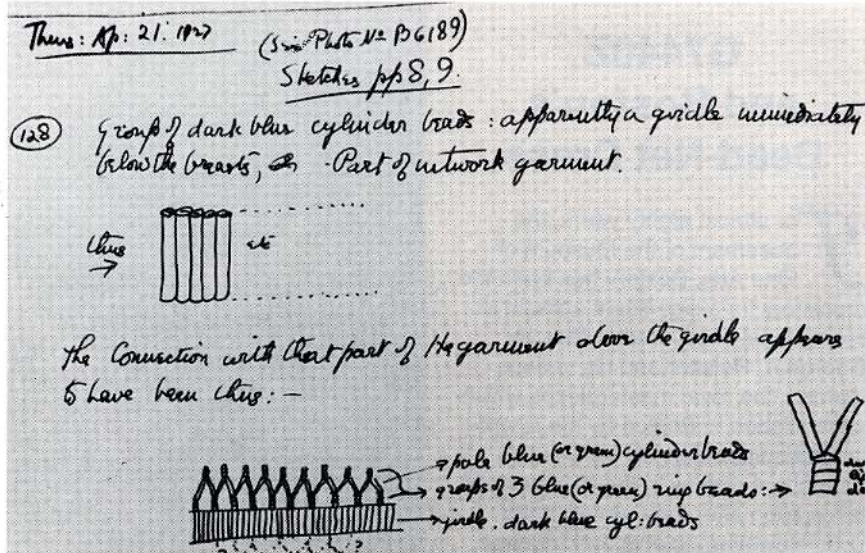 Thurs: Ap: 21: 1927
(See Photo No B6189)
Sketches pp 8, 9.
128
Group of dark blue cylinder beads : apparently a girdle immediately
below the breasts, Part of network garment.
thus
etc
The Connection with that part of the garment above the girdle appears
to have been thus: —
pale blue (or green) cylinder beads
groups of 3 blue (or green) ring beads:
girdle. dark blue cyl: beads